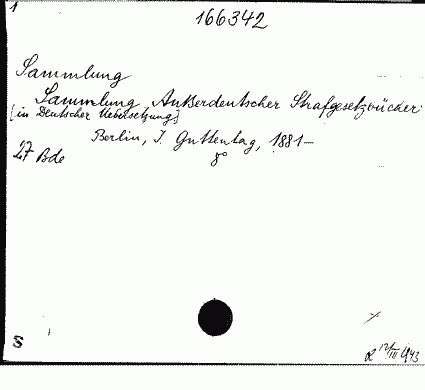 1
166342
Sammlung
Sammlung Außerdeutscher Strafgesetzbücher
[in Deutscher Uebersetzung]
Berlin, J. Guttentag, 1881–
8°
27 Bde
S
12/III 43